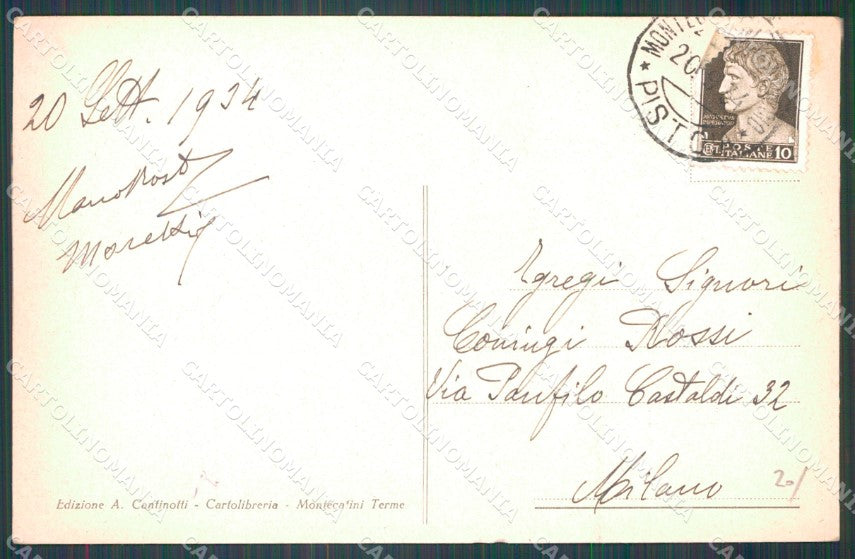 20 Sett. 1934
Moretti
MONTE
20
PISTO
POSTE
ITALIANE 10
Egregi Signori
Comingi Rossi
Via Panfilo Castaldi 32
Milano
20/
Edizione A. Continotti - Cartolibreria - Montecatini Terme
CARTOLINOMANIA